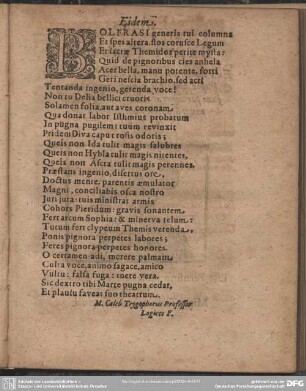 Eidem.
BOLFRASI generis tui columna
Et spes altera, flos corusce Legum
Et sacræ Themidos perite mysta:
Quid de pignoribus cies anhela
Acer bella, manu potente, forti
Geri nescia brachio, sed acri
Tentanda ingenio, gerenda voce!
Non tu Delia bellici cruoris
Solamen folia, aut aves coronam,
Qua donat labor Isthmius probatum
In pugna pugilem: tuum revinxit
Pridem Diva caput rosis odoris;
Queis non Ida tulit magis salubres
Queis non Hybla tulit magis nitentes,
Queis non Ascra tulit magis perennes.
Præstans ingenio, disertus ore,
Doctus mente, parentis æmulator
Magni, conciliabis osca nostro
Juri jura: tuis ministrat armis
Cohors Pieridum: gravis sonantem
Fert arcum Sophia: & minerva telum:
Tutum fert clypeum Themis verenda,
Ponis pignora perpetes labores;
Feres pignora perpetes honores.
O certamen adi, merere palmam
Culta voce, animo sagace, amico
Vultu: falsa fuga: tuere vera.
Sic dextro tibi Marte pugna cedat,
Et plausu faveat suo theatrum.
M. Caleb Trygophorus Professor
Logices F.